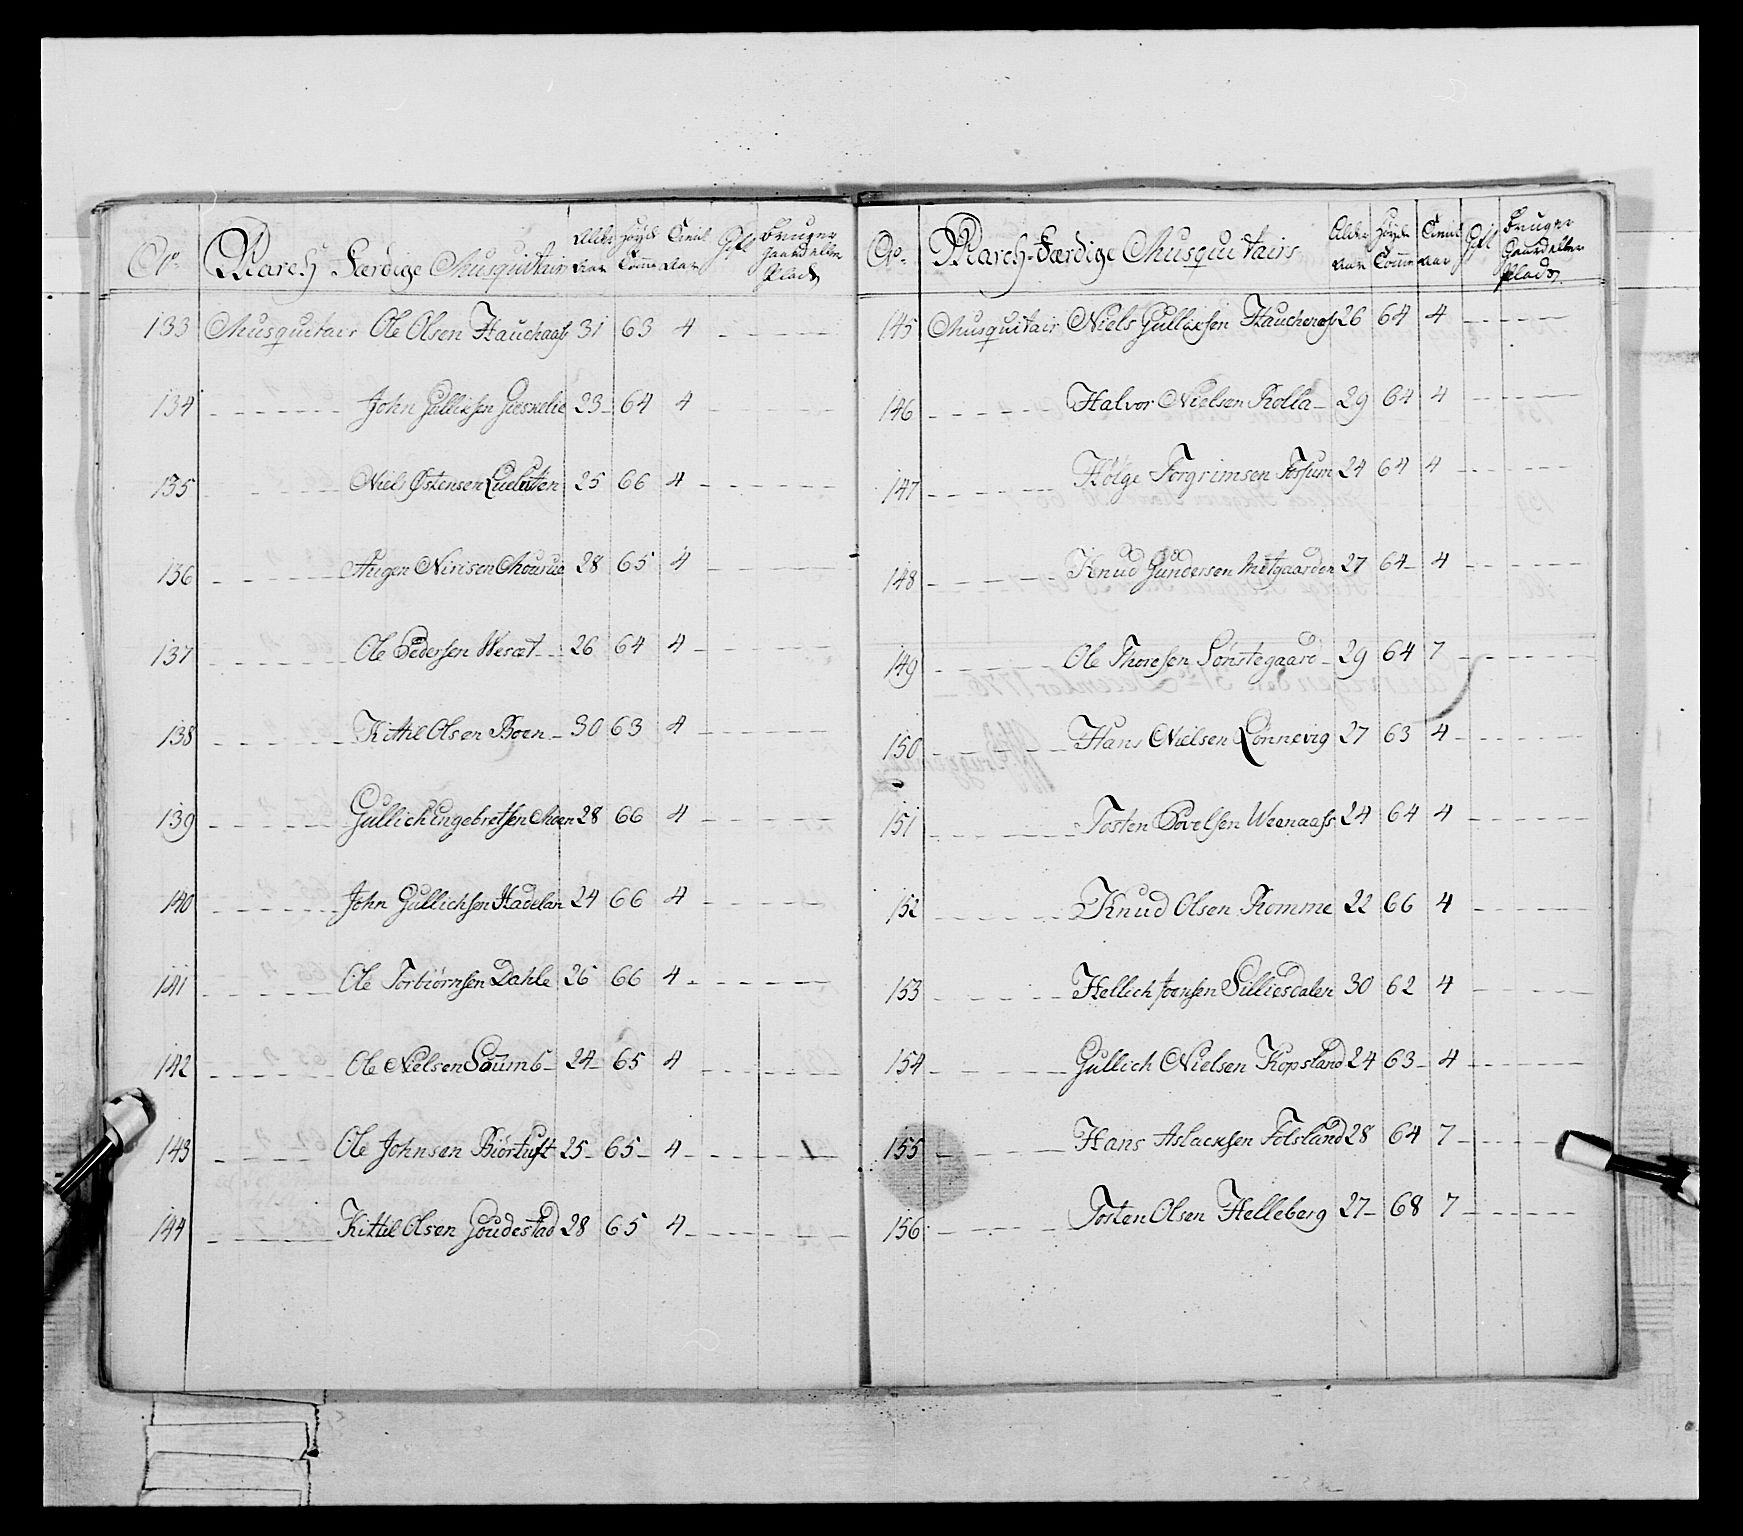 No. March Færdige Musquitair Alder Aar Høyde Tomme Tienist Aar Gift Bruger Gaard eller Plads
133 Musquitair Ole Olsen Hauchaas 31 63 4
134 John Gullixsen 23 64 4
135 Niels Østensen 25 66 4
136 28 65 4
137 Ole Pedersen 26 64 4
138 Kittil Olsen Boen 30 63 4
139 Gullich Engebretsen Moen 28 66 4
140 John Gullichsen Hadelan 24 66 4
141 Ole Torbiørnsen Dahle 26 66 4
142 Ole Nielsen 24 65 4
143 Ole Johnsen Biørtuft 25 65 4
144 Kittil Olsen Goudestad 28 65 4
No. March-Færdige Musquitairs Alder Aar Høyde Tomme Tienist Aar Gift Bruger Gaard eller Plads
145 Musquitair Niels Gullixsen 26 64 4
146 Halvor Nielsen Rolla 29 64 4
147 Hølge Torgrimsen Fossum 24 64 4
148 Knud Gundersen Metgaarden 27 64 4
149 Ole Thoresen Sønstegaard 29 64 7
150 Hans Nielsen Lønnevig 27 63 4
151 Tosten Povelsen Weenaass 24 64 4
152 Knud Olsen Romme 22 66 4
153 Hellich Joensen Silliesdalen 30 62 4
154 Gullich Nielsen Kopsland 24 63 4
155 Hans Aslacksen Folsland 28 64 7
156 Tosten Olsen Helleberg 27 68 7